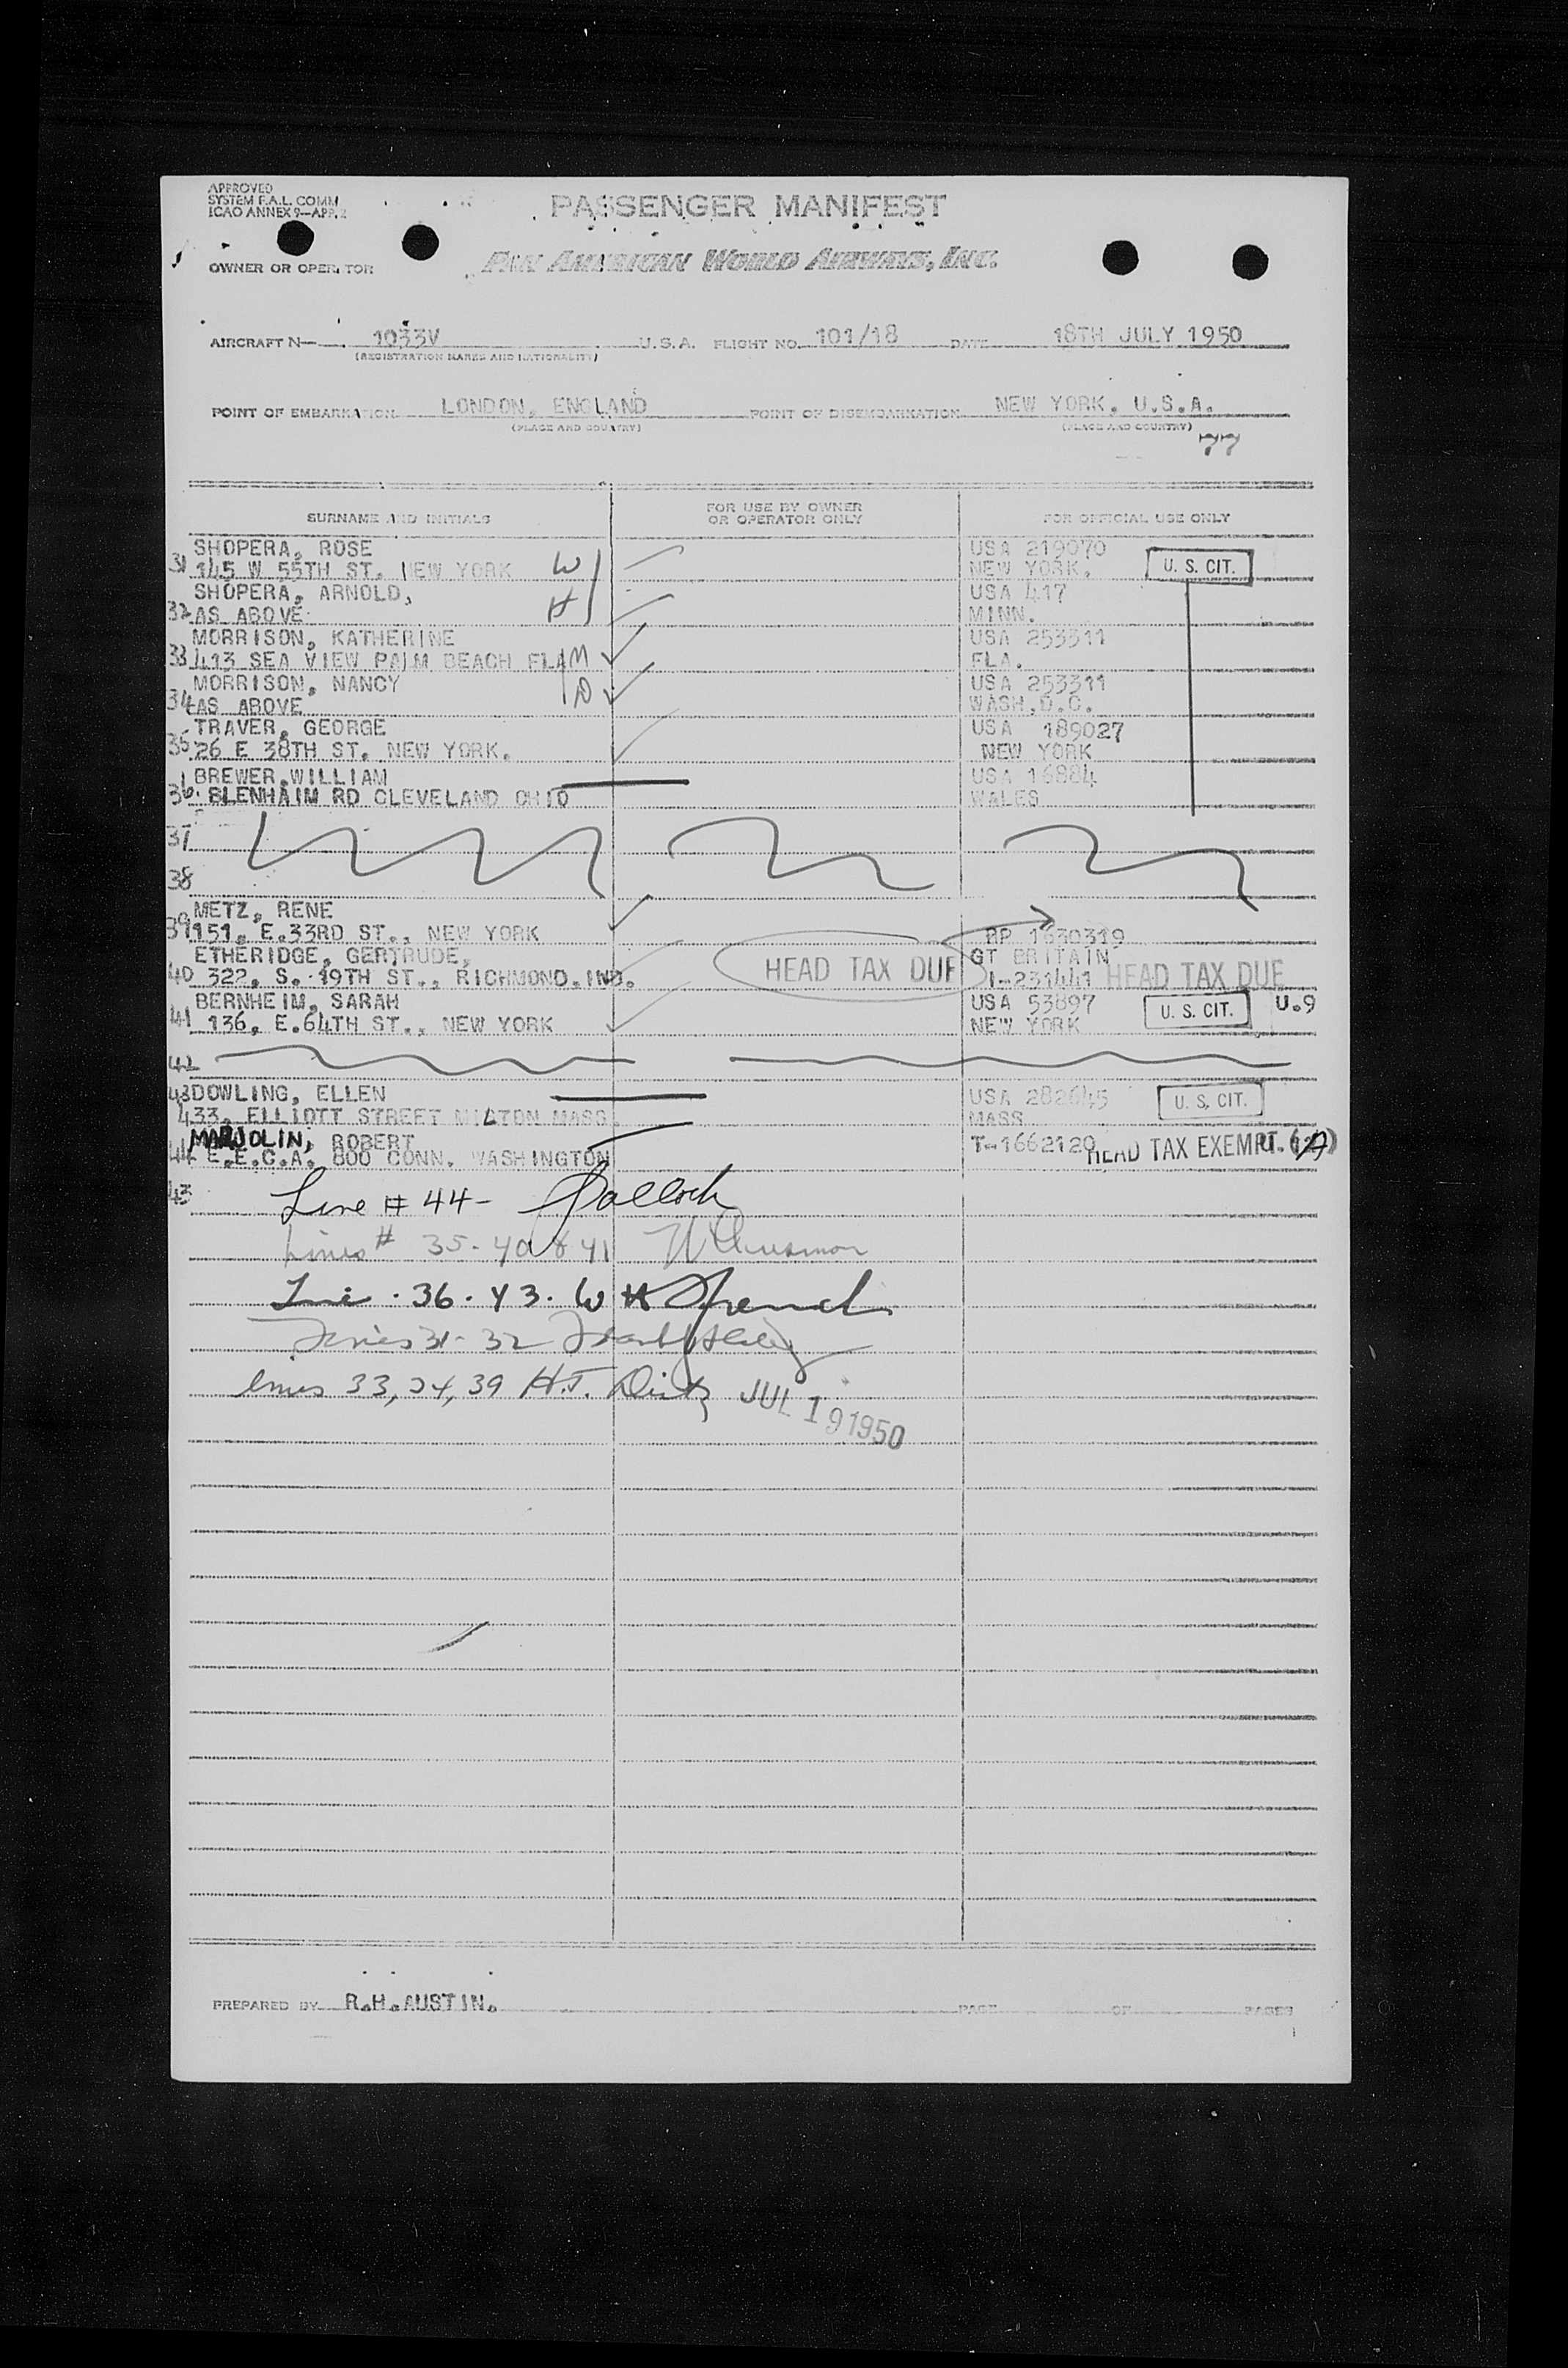 APPROVED
SYSTEM F.A.L. COMM
ICAO ANNEX 9—APP. 2
PASSENGER MANIFEST
OWNER OR OPERATOR PAN AMERICAN WORLD AIRWAYS, INC.
AIRCRAFT N— 1033V U.S.A. FLIGHT NO. 101/18 DATE 18TH JULY 1950
(REGISTRATION MARKS AND NATIONALITY)
POINT OF EMBARKATION LONDON, ENGLAND POINT OF DISEMBARKATION NEW YORK, U.S.A.
(PLACE AND COUNTRY) (PLACE AND COUNTRY)
77
SURNAME AND INITIALS FOR USE BY OWNER OR OPERATOR ONLY FOR OFFICIAL USE ONLY
SHOPERA, ROSE USA 219070
31 145 W 55TH ST. NEW YORK W NEW YORK. U. S. CIT.
SHOPERA, ARNOLD, USA 417
32 AS ABOVE H MINN.
MORRISON, KATHERINE USA 253311
33 413 SEA VIEW PALM BEACH FLA M FLA.
MORRISON, NANCY USA 253311
34 AS ABOVE D WASH.D.C.
TRAVER, GEORGE USA 189027
35 26 E 38TH ST. NEW YORK. NEW YORK
BREWER,WILLIAM USA 16884
36. BLENHAIM RD CLEVELAND OHIO WALES
37
38
METZ, RENE
39 151, E.33RD ST., NEW YORK RP 1630319
ETHERIDGE, GERTRUDE, HEAD TAX DUE GT BRITAIN
40 322, S. 19TH ST., RICHMOND.IND. I-231441 HEAD TAX DUE
BERNHEIM, SARAH USA 53897 U. S. CIT. U.9
41 136, E.64TH ST., NEW YORK NEW YORK
42
43 DOWLING, ELLEN USA 282645 U. S. CIT.
433, ELLIOTT STREET MILTON MASS. MASS
MARJOLIN, ROBERT T-1662120 HEAD TAX EXEMPT.
44 E.E.C.A. 800 CONN. WASHINGTON
43
Line # 44-
Lines # 35-40 & 41
Line . 36 . 43 . W H
Lines 31-32
lines 33, 34, 39 H.J.
JUL 19 1950
PREPARED BY R.H.AUSTIN. PAGE OF PAGES